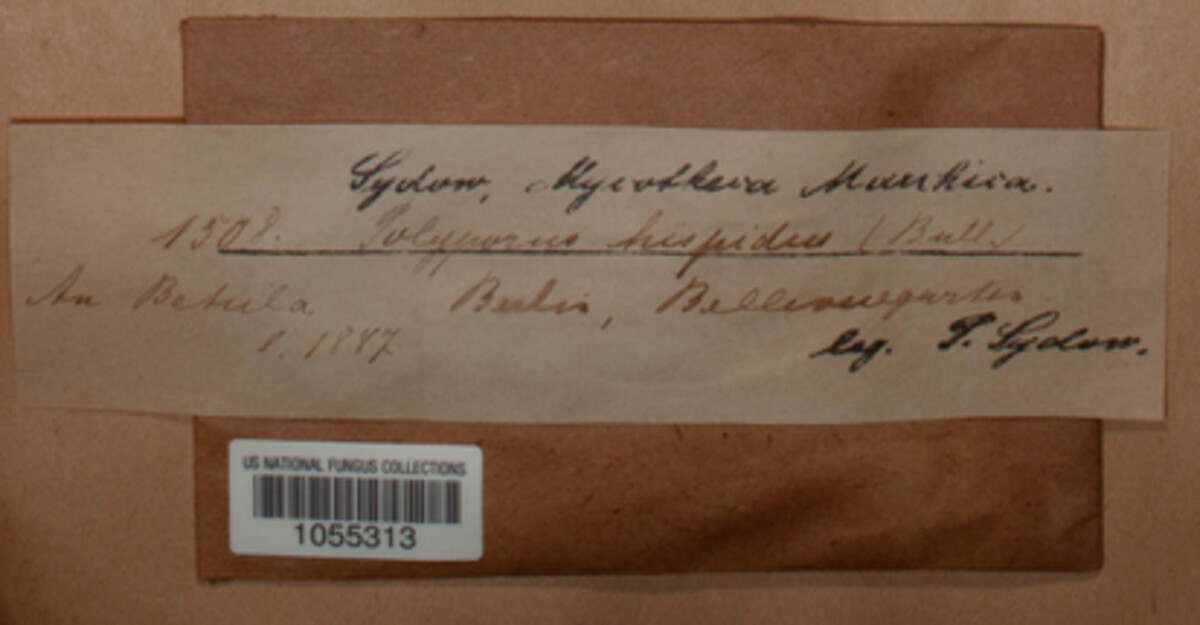 Sydow, Mycotheca Marchica.
1508. Polyporus hispidus (Bull.)
An Betula. Berlin, Bellevuegarten.
1887
leg. P. Sydow.
US NATIONAL FUNGUS COLLECTIONS
1055313